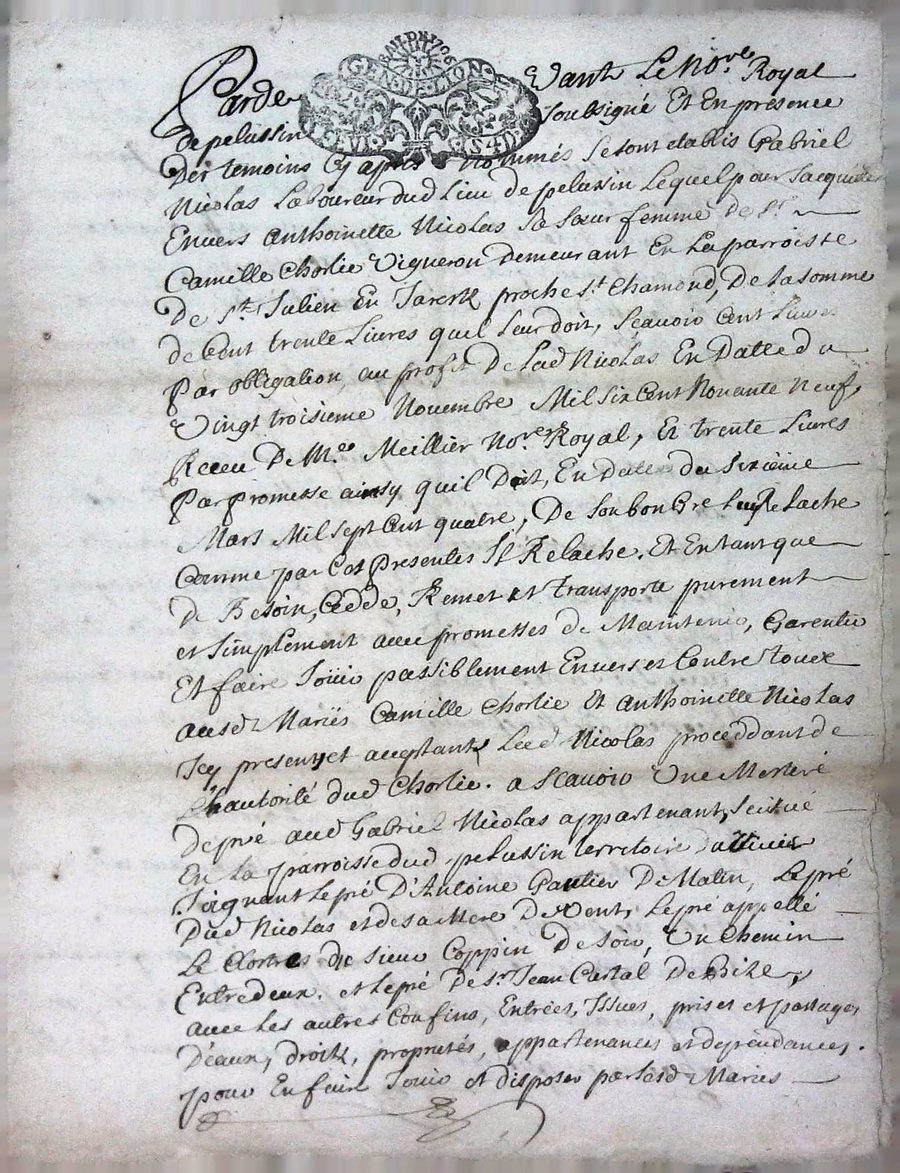 BAIL DE 1706
GEN. DE LION
S4D
Pardevant Le No.re Royal
de pelussin soubsigné Et En presence
Des temoins Cy apres nommés se sont etablis Gabriel
Nicolas Laboureur dud Lieu de pelussin Lequel pour sacquiter
Envers anthoinette Nicolas sa sœur femme de Sr
Camille Chorlie Vigneron demeurant En La parroisse
De St Julien En Jarestz proche St Chamond, De la somme
de Cent trente Livres quil leur doit, Scauoir Cent Liures
Par obligation, au profit De Lad Nicolas En Datte du
Vingt troisieme Novembre Mil Six Cent Nonante Neuf,
Receu De M.e Meillier No.re Royal, Et trente Livres
Par promesse ainsy quil Doit, En Datte du sixieme
Mars Mil sept Cent quatre, De son bon Gre relache
Comme par Ces presentes Il Relache. Et En tant que
de Besoin, Cedde, Remet et transporte purement
et simplement avec promesses de Maintenir, Garentir
Et faire Joüir passiblement Envers et Contre toux
ausd Mariës Camille Chorlie Et anthoinette Nicolas
Icy present et aceptants Lad Nicolas proceddant de
Lhautorité dud Chorlie. a Scauoir Une Mesteré
de pré aud Gabriel Nicolas appartenant, Scitüé
En La parroisse dud pelussin territoire
Joignant Le pré D'Antoine Gautier De Matin, Le pré
Dud Nicolas et de sa Mere De Vent, Le pré appellé
Le du Sieur Coppin De soir, Un Chemin
Entredeux. et Le pré De Sr Jean Castal De Bize,
avec Les autres Confins, Entrées, Issues, prises et passages
D'eaux, droitz, propriétés, appartenances et dependances.
pour En faire Jouir et disposer par Lesd Mariés